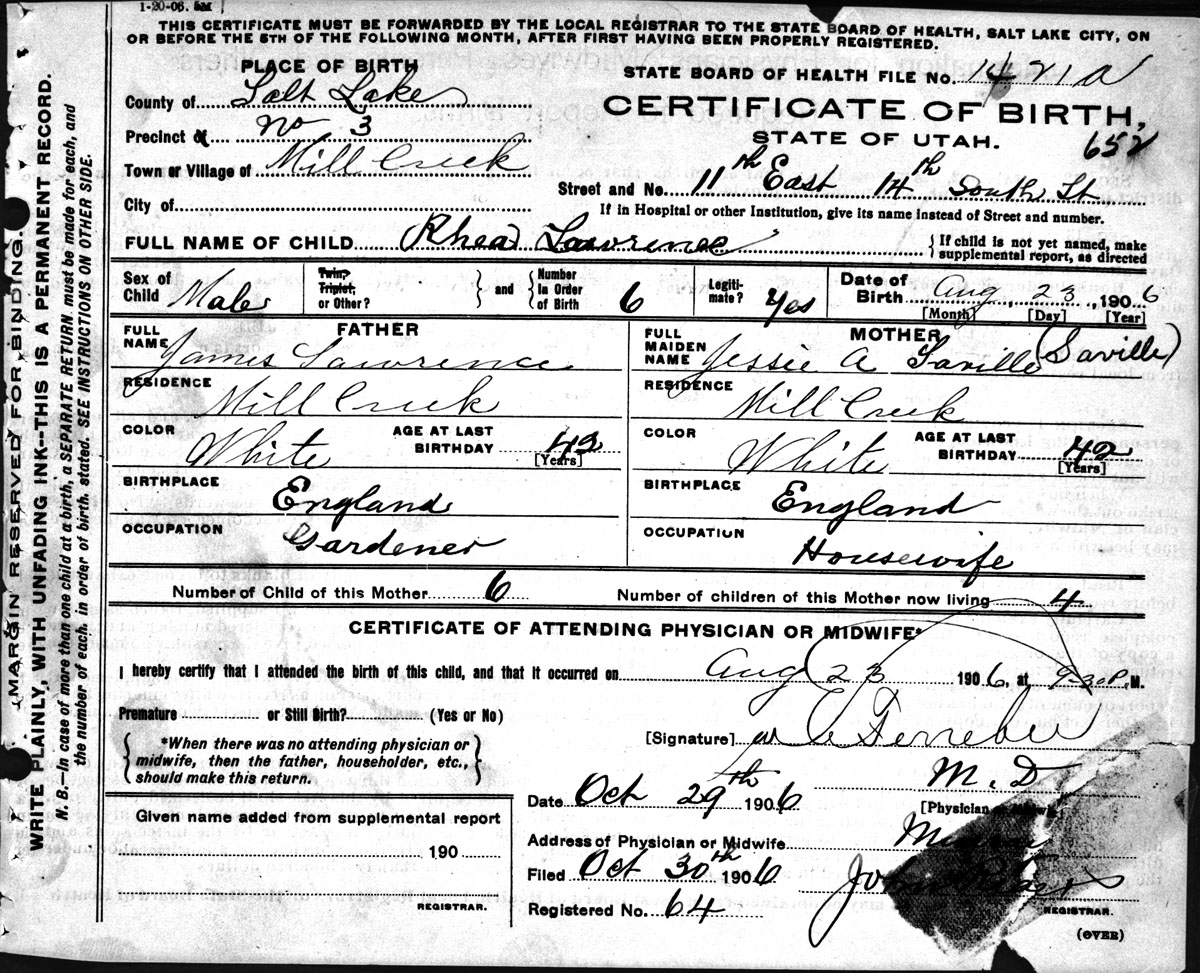 1-20-06. 5M
THIS CERTIFICATE MUST BE FORWARDED BY THE LOCAL REGISTRAR TO THE STATE BOARD OF HEALTH, SALT LAKE CITY, ON
OR BEFORE THE 5TH OF THE FOLLOWING MONTH, AFTER FIRST HAVING BEEN PROPERLY REGISTERED.
PLACE OF BIRTH
County of Salt Lake
Precinct of No 3
Town or Village of Mill Creek
City of
STATE BOARD OF HEALTH FILE No. 1421a
CERTIFICATE OF BIRTH,
STATE OF UTAH.
652
Street and No. 11th East 14th South St
If in Hospital or other Institution, give its name instead of Street and number.
FULL NAME OF CHILD Rhead Lawrence
{ If child is not yet named, make
supplemental report, as directed
Sex of Child Male
Twin, Triplet, or Other? } and { Number in Order of Birth 6
Legitimate? Yes
Date of Birth Aug 23, 1906
[Month] [Day] [Year]
FATHER
FULL NAME James Lawrence
RESIDENCE Mill Creek
COLOR White AGE AT LAST BIRTHDAY 43 [Years]
BIRTHPLACE England
OCCUPATION Gardener
MOTHER
FULL MAIDEN NAME Jessie A Saville (Saville)
RESIDENCE Mill Creek
COLOR White AGE AT LAST BIRTHDAY 42 [Years]
BIRTHPLACE England
OCCUPATION Housewife
Number of Child of this Mother 6 Number of children of this Mother now living 4
CERTIFICATE OF ATTENDING PHYSICIAN OR MIDWIFE*
I hereby certify that I attended the birth of this child, and that it occurred on Aug 23 1906, at 9-30 P. M.
Premature or Still Birth? (Yes or No)
{ *When there was no attending physician or
midwife, then the father, householder, etc.,
should make this return. }
[Signature]
M. D
[Physician or
Date Oct 29th 1906
Address of Physician or Midwife
Filed Oct 30th 1906
John
REGISTRAR.
Registered No. 64
(OVER)
Given name added from supplemental report
190
REGISTRAR.
(MARGIN RESERVED FOR BINDING.)
WRITE PLAINLY, WITH UNFADING INK--THIS IS A PERMANENT RECORD.
N. B.—In case of more than one child at a birth, a SEPARATE RETURN must be made for each, and
the number of each, in order of birth, stated. SEE INSTRUCTIONS ON OTHER SIDE.